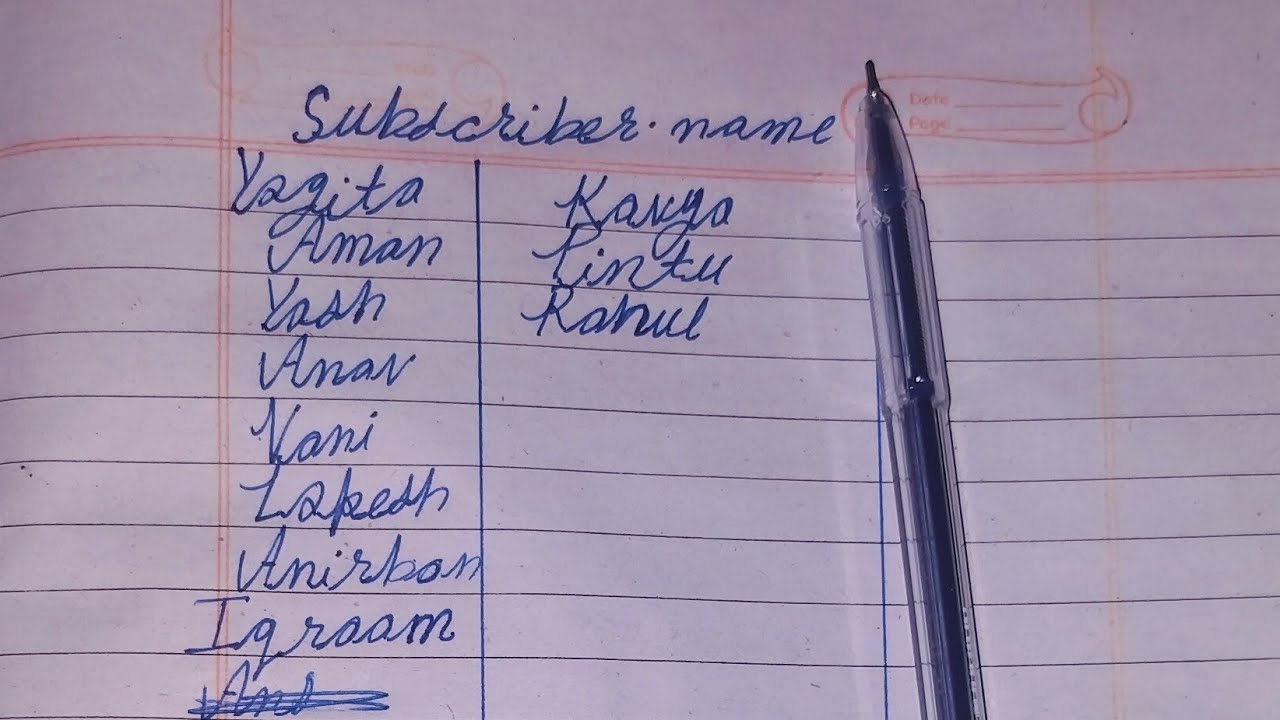 Subscriber. name
Date
Page
Yogita
Aman
Yash
Anav
Vani
Lokesh
Anirban
Iqraam
Kavya
Pintu
Rahul